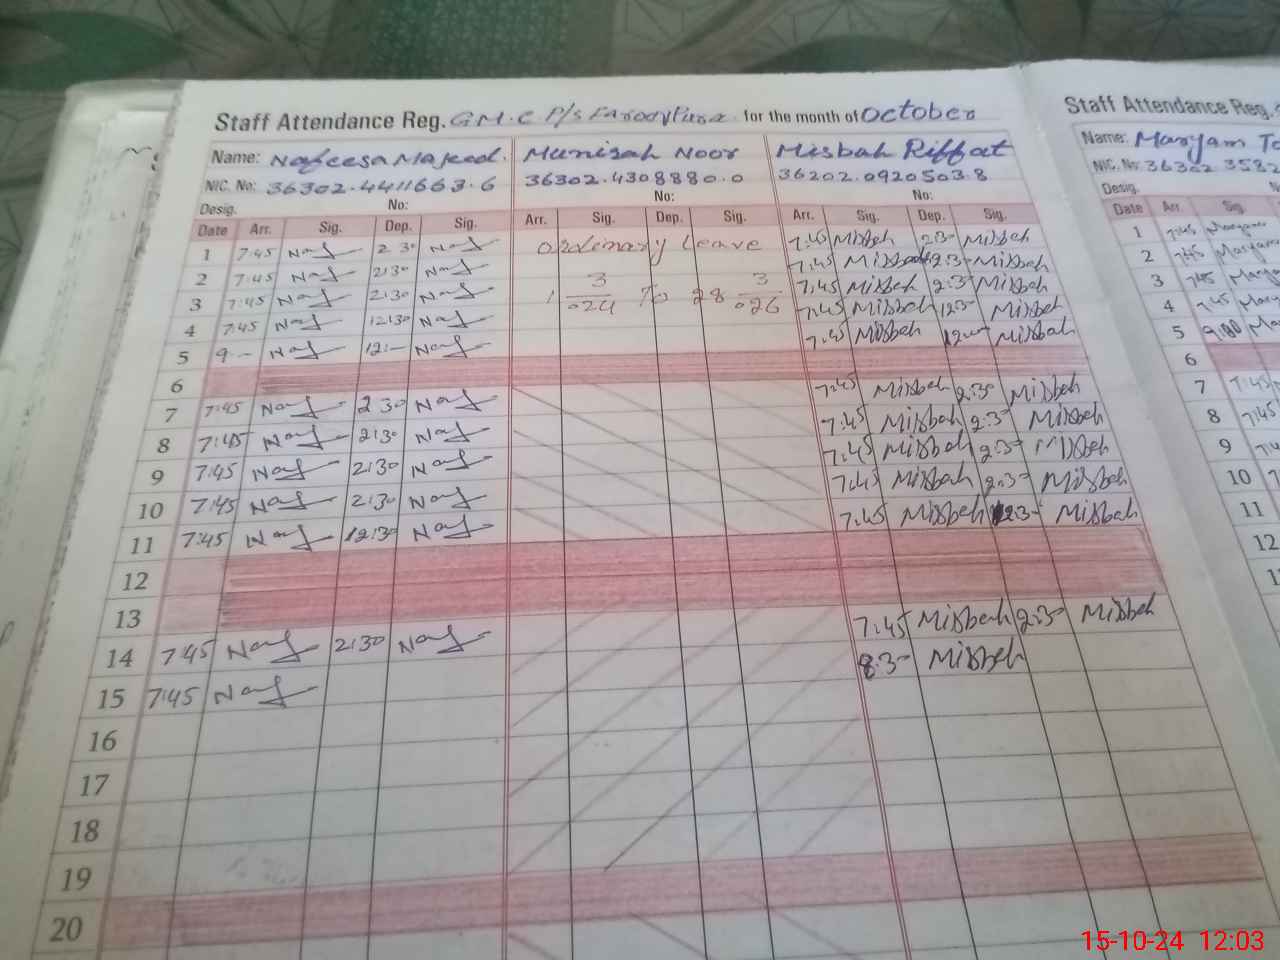 Staff Attendance Reg. G.M.C P/s Farooqpura for the month of October
Name: Nafeesa Majeed. Munizah Noor Misbah Riffat
NIC. No: 36302.4411663.6 36302.4308880.0 36202.0920503.8
Desig. No: No: No:
Date Arr. Sig. Dep. Sig. Arr. Sig. Dep. Sig. Arr. Sig. Dep. Sig.
1 7:45 Naf 2 30 Naf ordinary leave 7:45 Misbah 2:30 Misbah
2 7:45 Naf 2:30 Naf 7:45 Misbah 2:30 Misbah
3 7:45 Naf 2:30 Naf 1 3/024 To 28 3/026 7:45 Misbah 2:30 Misbah
4 7:45 Naf 12:30 Naf 7:45 Misbah 12:30 Misbah
5 9 - Naf 12:- Naf 7:45 Misbah 12 Misbah
6
7 7:45 Naf 2 30 Naf 7:45 Misbah 2:30 Misbah
8 7:45 Naf 2:30 Naf 7:45 Misbah 2:30 Misbah
9 7:45 Naf 2:30 Naf 7:45 Misbah 2:30 Misbah
10 7:45 Naf 2:30 Naf 7:45 Misbah 2:30 Misbah
11 7:45 Naf 12:30 Naf 7:45 Misbah 12:30 Misbah
12
13
14 7:45 Naf 2:30 Naf 7:45 Misbah 2:30 Misbah
15 7:45 Naf 8:30 Misbah
16
17
18
19
20
Staff Attendance Reg.
Name: Maryam
NIC. No: 36302 3582
Desig.
Date Arr. Sig.
1 7:45 Maryam
2 7:45 Maryam
3 7:45
4 7:45
5 9:00
6
7 7:45
8 7:45
9
10
11
12
15-10-24 12:03